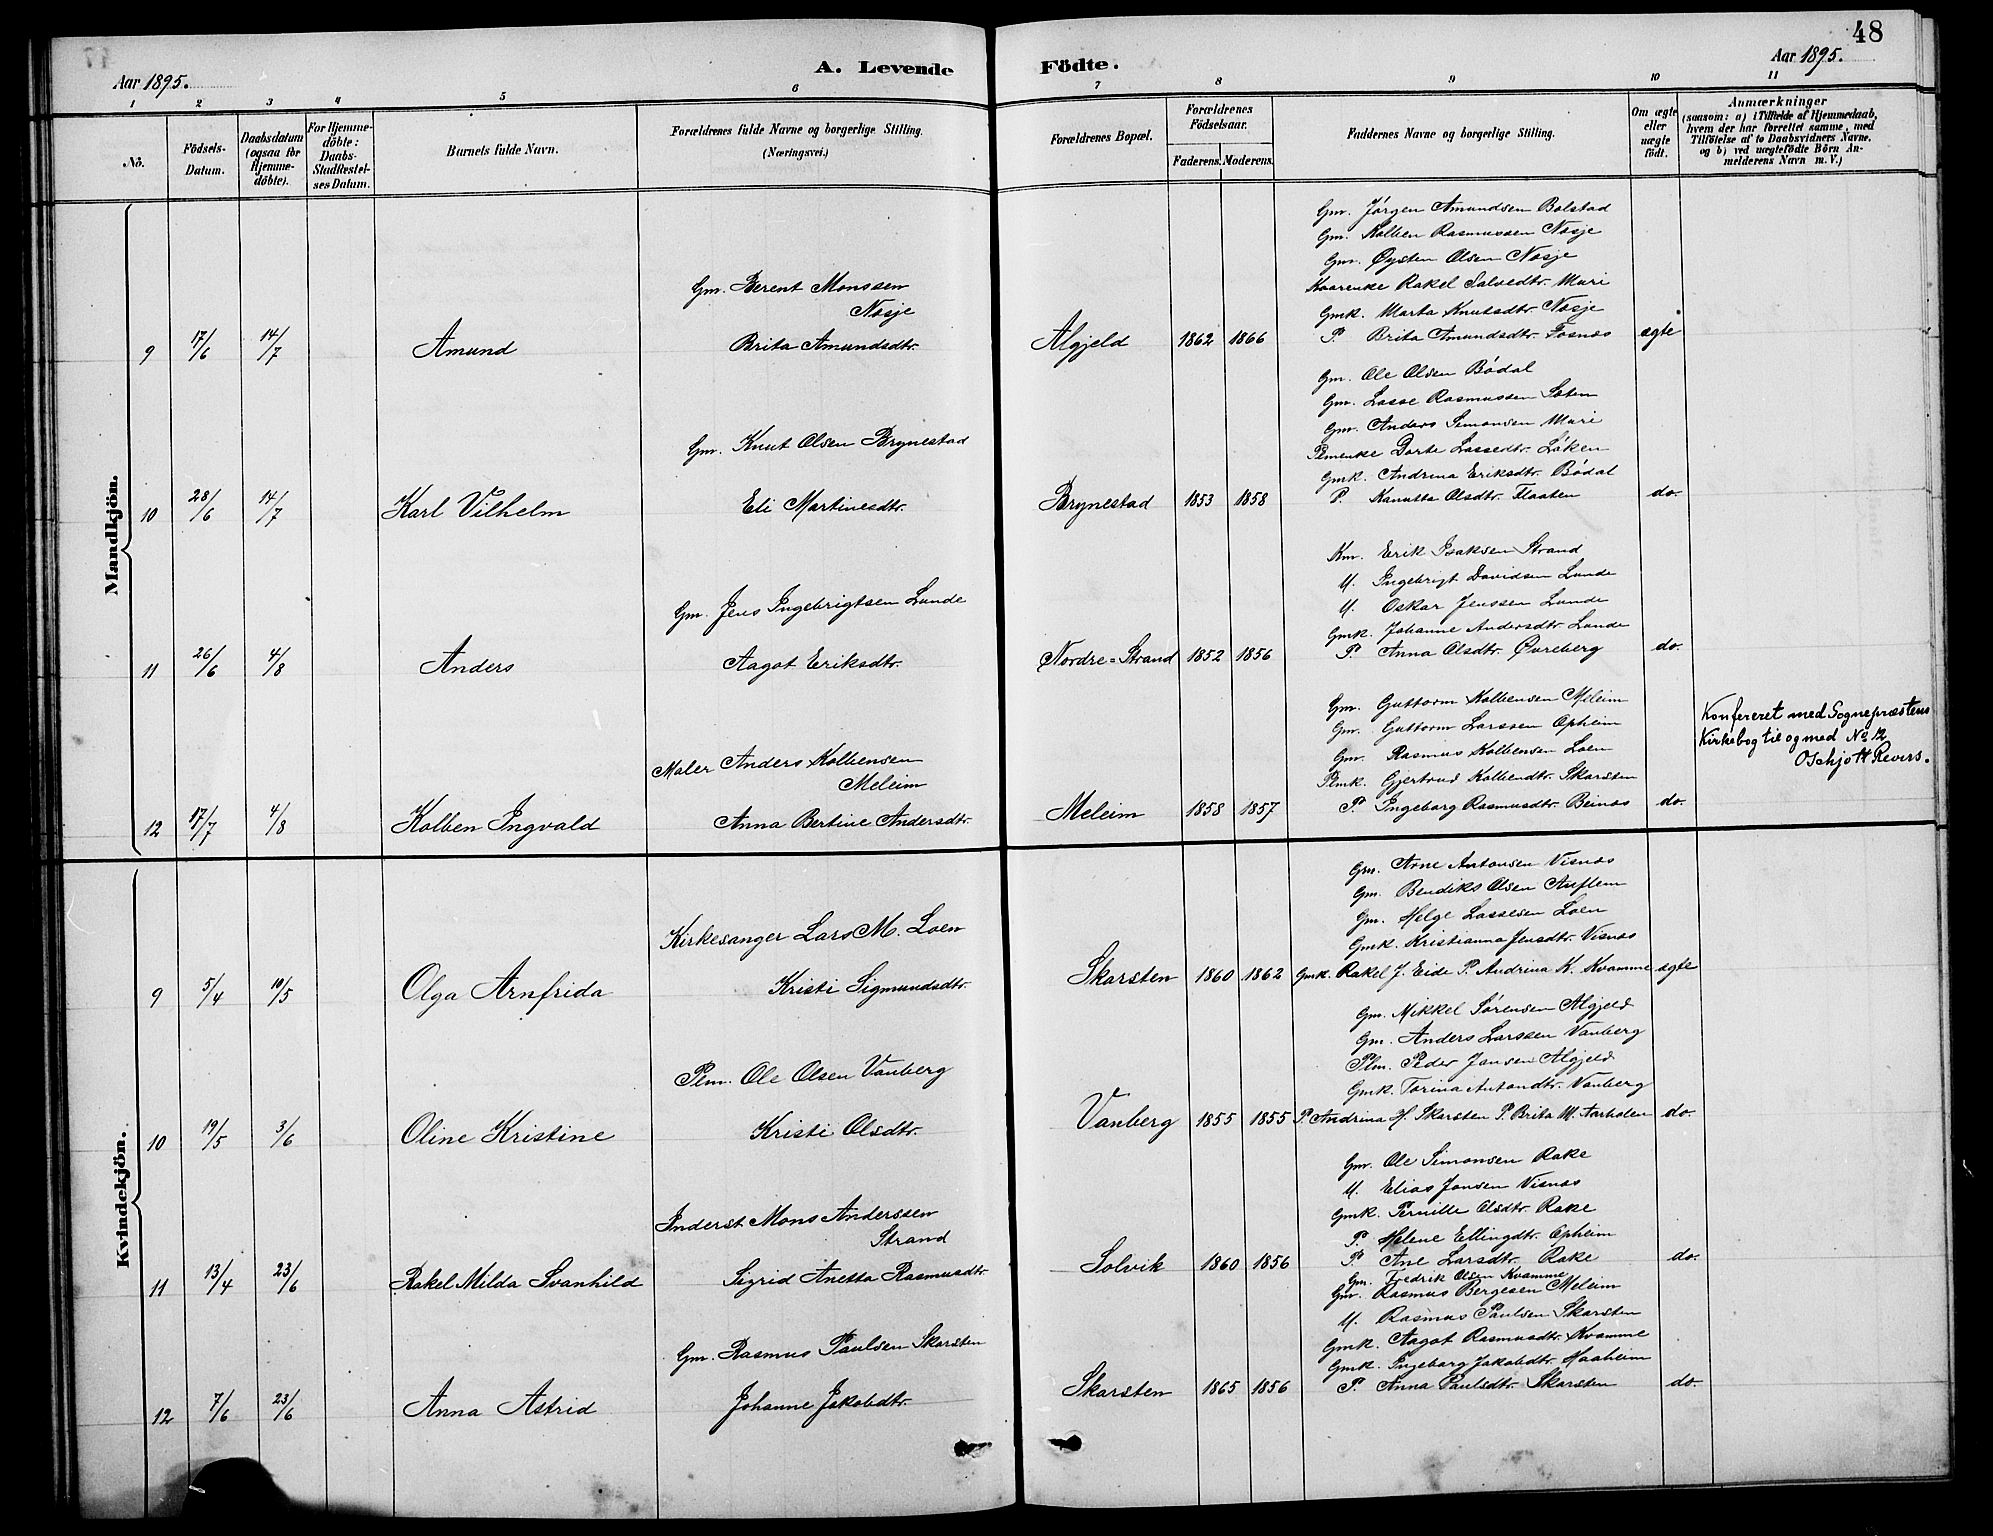 48
Aar 1895.
A. Levende Födte.
Aar 1895.
1 2 3 4 5 6 7 8 9 10 11
No.
Födsels-Datum.
Daabsdatum (ogsaa for Hjemme-döbte).
For Hjemme-döbte: Daabs-Stadfæstel-ses Datum.
Barnets fulde Navn.
Forældrenes fulde Navne og borgerlige Stilling. (Næringsvei.)
Forældrenes Bopæl.
Forældrenes Födselsaar.
Faderens. Moderens.
Faddernes Navne og borgerlige Stilling.
Om ægte eller uægte födt.
Anmærkninger
(saasom: a) i Tilfælde af Hjemmedaab,
hvem der har forrettet samme, med
Tilföielse af to Daabsvidners Navne.
og b) ved uægtefödte Börn An-
melderens Navn m. V.)
Mandkjön.
Gm. Jørgen Amundsen Bolstad
Gm. Kolben Rasmussen Nosje
Gm. Øysten Olsen Nosje
Gm. Berent Monssen
Kaarenke Rakel Salvedtr. Muri
Nosje
Gmk. Marta Knutsdtr. Nosje
9 17/6 14/7 Amund Brita Amundsdtr. Algjeld 1862 1866 P. Brita Amundsdtr. Fosnæs ægte
Gm. Ole Olsen Bødal
Gm. Lasse Rasmussen Sæten
Gm. Anders Simonsen Muri
Gm. Knut Olsen Brynestad
Plmenke Dorte Lassedtr. Løken
Gmk. Andrina Eriksdtr. Bødal
10 28/6 14/7 Karl Vilhelm Eli Martinesdtr. Brynestad 1853 1858 P. Kanutta Olsdtr. Flaaten do.
Km. Erik Isaksen Strand
U. Ingebrigt Davidsen Lunde
Gm. Jens Ingebrigtsen Lunde
U. Oskar Jenssen Lunde
Gmk. Johanne Andersdtr. Lunde
11 26/6 4/8 Anders Aagot Eriksdtr. Nordre=Strand 1852 1856 P. Anna Olsdtr. Øvreberg do.
Gm. Guttorm Kolbensen Meleim
Gm. Guttorm Larssen Opheim
Maler Anders Kolbensen
Gm. Rasmus Kolbensen Loen
Meleim
Plmk. Gjertrud Kolbendtr. Skarsten
12 17/7 4/8 Kolben Ingvald Anna Bertine Andersdtr. Meleim 1858 1857 P. Ingeborg Rasmusdtr. Beinæs do.
Konfereret med Sognepræstens
Kirkebog til og med No 12
OSchjøtt Revers.
Kvindekjön.
Gm. Arne Antonsen Visnæs
Gm. Bendiks Olsen Auflem
Gm. Helge Lassesen Loen
Kirkesanger Lars M. Loen
Gmk. Kristianna Jensdtr. Visnæs
9 5/4 10/5 Olga Arnfrida Kristi Sigmundsdtr. Skarsten 1860 1862 Gmk. Rakel J. Eide P. Andrina K. Kvamme ægte
Gm. Mikkel Sørensen Algjeld
Gm. Anders Larssen Vanberg
Plm. Ole Olsen Vanberg
Plm. Peder Jonsen Algjeld
Gmk. Torina Antondtr. Vanberg
10 19/5 3/6 Oline Kristine Kristi Olsdtr. Vanberg 1855 1855 P. Andrina H. Skarsten P. Brita M. Aarholen do.
Gm. Ole Simonsen Rake
U. Elias Jonsen Visnæs
Inderst Mons Anderssen
Gmk. Pernille Olsdtr. Rake
Strand
P. Helene Ellingdtr. Opheim
11 13/4 23/6 Rakel Milda Svanhild Sigrid Anetta Rasmusdtr. Solvik 1860 1856 P. Ane Larsdtr. Rake do.
Gm. Fredrik Olsen Kvamme
Gm. Rasmus Bergesen Meleim
U. Rasmus Paulsen Skarsten
Gm. Rasmus Paulsen Skarsten
Gmk. Aagot Rasmusdtr. Kvamme
Gmk. Ingeborg Jakobdtr. Haaheim
12 7/6 23/6 Anna Astrid Johanne Jakobdtr. Skarsten 1865 1856 P. Anna Paulsdtr. Skarsten do.